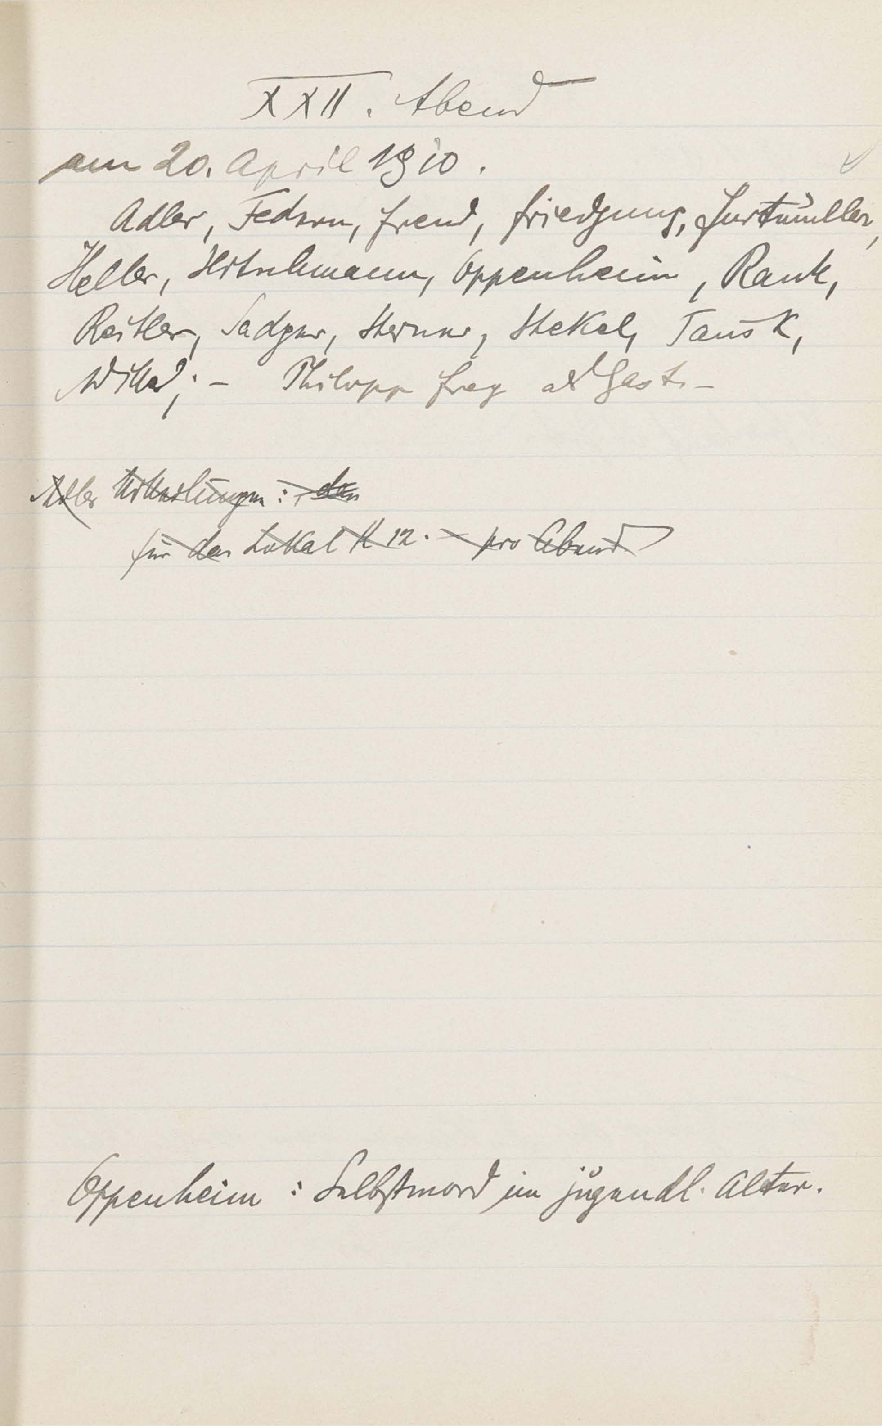 XXII. Abend
am 20. April 1910.
Adler, Federn, Freud, Friedjung, Furtmüller,
Heller, Hitschmann, Oppenheim, Rank,
Reitler, Sadger, Steiner, Stekel, Tausk,
Wittels; – Philipp Frey als Gast. –
Adler Mitteilungen: das
für das Lokal K 12. – pro Abend
Oppenheim: Selbstmord im jugendl. Alter.